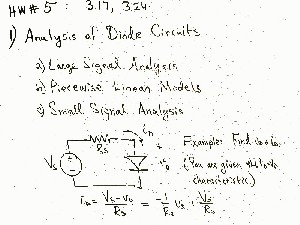 HW# 5 : 3.17, 3.24
1) Analysis of Diode Circuits
a) Large Signal Analysis
b) Piecewise Linear Models
c) Small Signal Analysis
Example: Find
(You are given the
characteristic)
Vs
Rs
= Vs - vo / Rs = -1/Rs vo + Vs/Rs